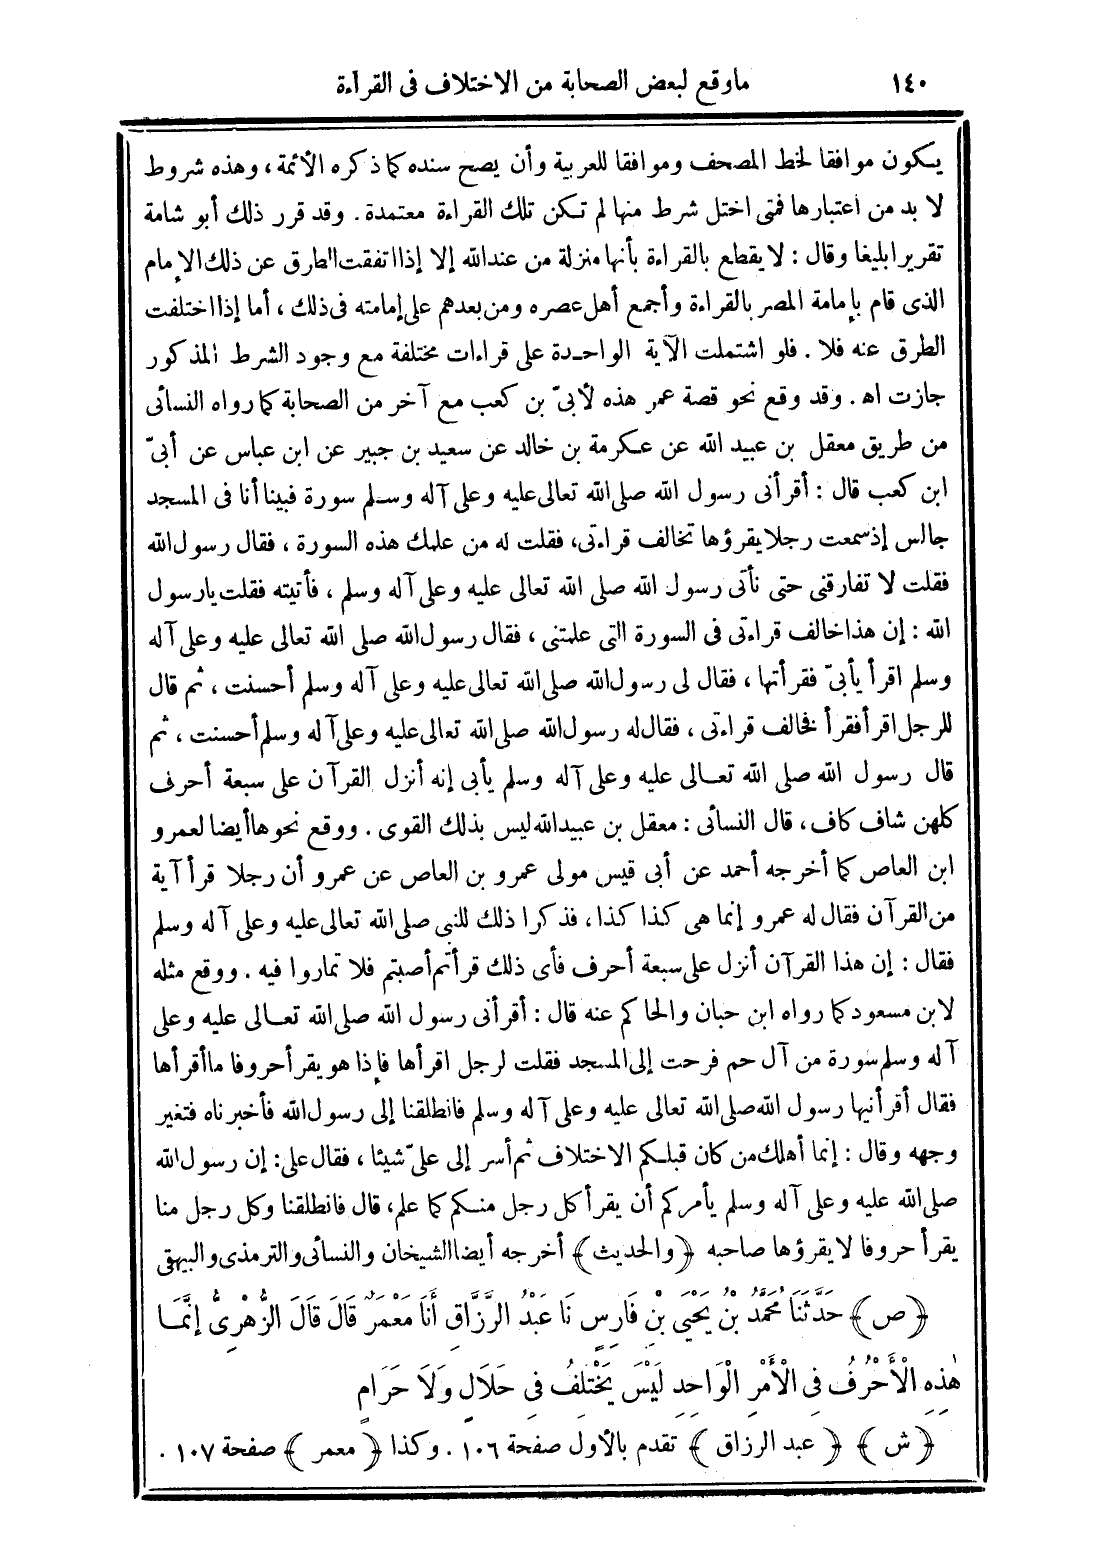 ١٤٠ ماوقع لبعض الصحابة من الاختلاف فى القرآءة
يكون موافقا لخط المصحف وموافقا للعربية وأن يصح سنده كما ذكره الأئمة، وهذه شروط
لا بد من اعتبارها فمتى اختل شرط منها لم تكن تلك القراءة معتمدة. وقد قرر ذلك أبو شامة
تقريرا بليغا وقال: لا يقطع بالقراءة بأنها منزلة من عند الله إلا إذا اتفقت الطرق عن ذلك الإمام
الذى قام بإمامة المصر بالقراءة وأجمع أهل عصره ومن بعدهم على إمامته فى ذلك، أما إذا اختلفت
الطرق عنه فلا. فلو اشتملت الآية الواحدة على قراءات مختلفة مع وجود الشرط المذكور
جازت اه. وقد وقع نحو قصة عمر هذه لأبىّ بن كعب مع آخر من الصحابة كما رواه النسائى
من طريق معقل بن عبيد الله عن عكرمة بن خالد عن سعيد بن جبير عن ابن عباس عن أبىّ
ابن كعب قال: أقرأنى رسول الله صلى الله تعالى عليه وعلى آله وسلم سورة فبينا أنا فى المسجد
جالس إذ سمعت رجلا يقرؤها تخالف قراءتى، فقلت له من علمك هذه السورة، فقال رسول الله
فقلت لا تفارقنى حتى نأتى رسول الله صلى الله تعالى عليه وعلى آله وسلم، فأتيته فقلت يارسول
الله: إن هذا خالف قراءتى فى السورة التى علمتنى، فقال رسول الله صلى الله تعالى عليه وعلى آله
وسلم اقرأ يأبىّ فقرأتها، فقال لى رسول الله صلى الله تعالى عليه وعلى آله وسلم أحسنت، ثم قال
للرجل اقرأ فقرأ فخالف قراءتى، فقال له رسول الله صلى الله تعالى عليه وعلى آله وسلم أحسنت، ثم
قال رسول الله صلى الله تعالى عليه وعلى آله وسلم يأبى إنه أنزل القرآن على سبعة أحرف
كلهن شاف كاف، قال النسائى: معقل بن عبيدالله ليس بذلك القوى. ووقع نحوها أيضا لعمرو
ابن العاص كما أخرجه أحمد عن أبى قيس مولى عمرو بن العاص عن عمرو أن رجلا قرأ آية
من القرآن فقال له عمرو إنما هى كذا كذا، فذكرا ذلك للنبى صلى الله تعالى عليه وعلى آله وسلم
فقال: إن هذا القرآن أنزل على سبعة أحرف فأى ذلك قرأتم أصبتم فلا تماروا فيه. ووقع مثله
لابن مسعود كما رواه ابن حبان والحاكم عنه قال: أقرأنى رسول الله صلى الله تعالى عليه وعلى
آله وسلم سورة من آل حم فرحت إلى المسجد فقلت لرجل اقرأها فإذا هو يقرأ حروفا ما أقرأها
فقال أقرأنيها رسول الله صلى الله تعالى عليه وعلى آله وسلم فانطلقنا إلى رسول الله فأخبرناه فتغير
وجهه وقال: إنما أهلك من كان قبلكم الاختلاف ثم أسر إلى علىّ شيئا، فقال على: إن رسول الله
صلى الله عليه وعلى آله وسلم يأمركم أن يقرأ كل رجل منكم كما علم، قال فانطلقنا وكل رجل منا
يقرأ حروفا لا يقرؤها صاحبه ﴿والحديث﴾ أخرجه أيضا الشيخان والنسائى والترمذى والبيهقى
﴿ص﴾ حَدَّثَنَا مُحَمَّدُ بْنُ يَحْيَى بْنِ فَارِسٍ نَا عَبْدُ الرَّزَّاقِ أَنَا مَعْمَرٌ قَالَ قَالَ الزُّهْرِىُّ إِنَّمَا
هٰذِهِ الْأَحْرُفُ فِى الْأَمْرِ الْوَاحِدِ لَيْسَ يَخْتَلِفُ فِى حَلَالٍ وَلَا حَرَامٍ
﴿ش﴾ ﴿عبد الرزاق﴾ تقدم بالأول صفحة ١٠٦. وكذا ﴿معمر﴾ صفحة ١٠٧.